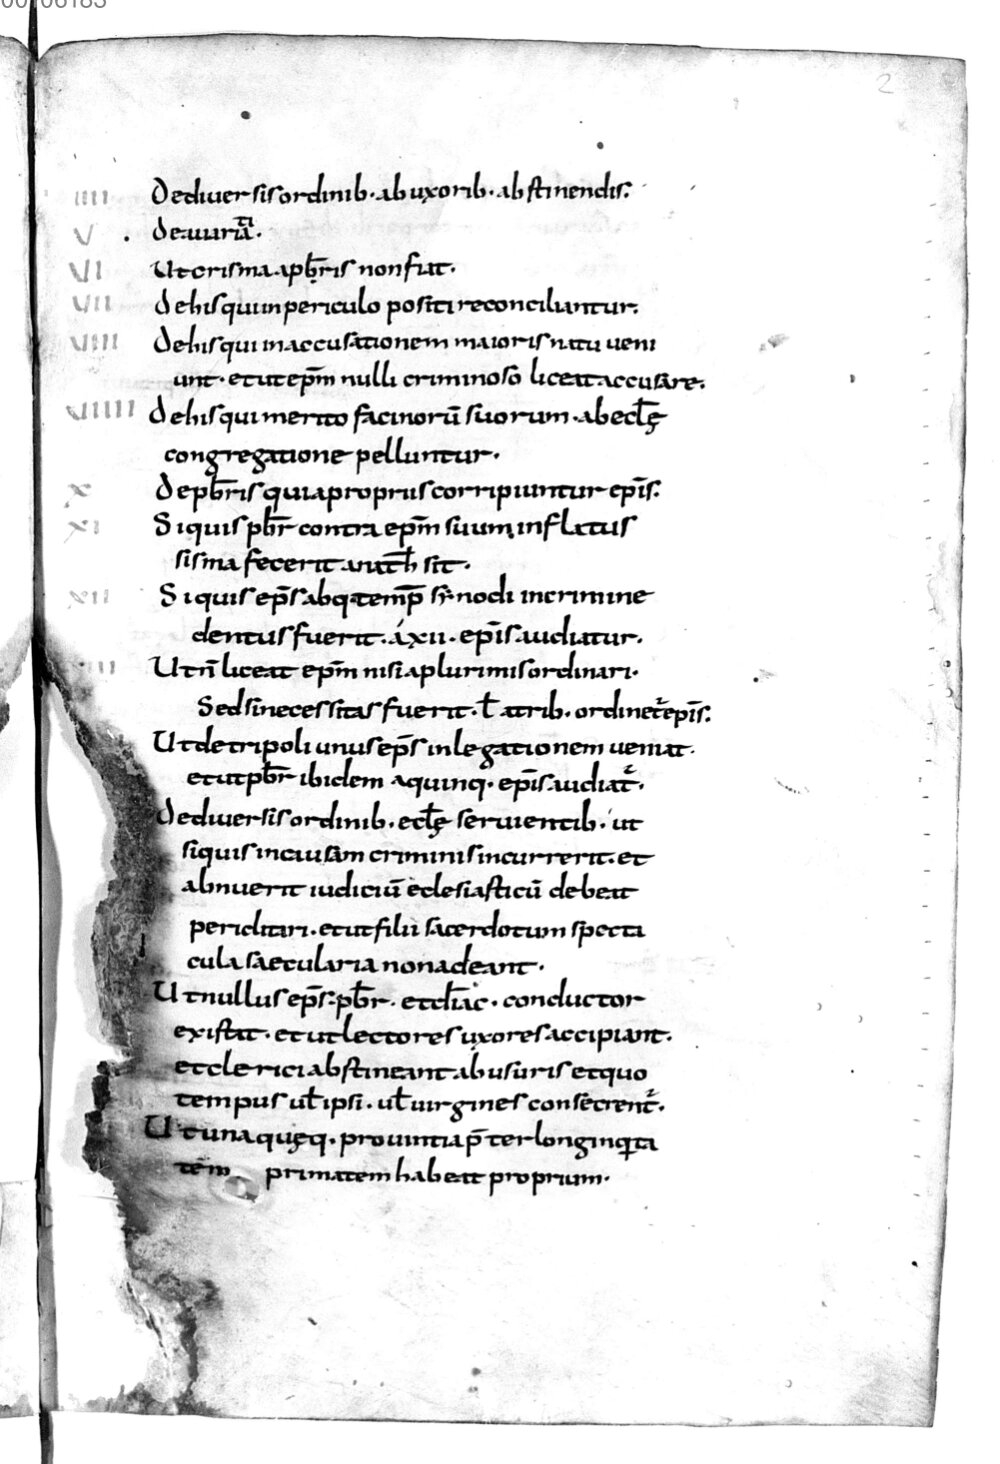 00106183
2
IIII De diuersis ordinib· ab uxorib· abstinendis:
V De auaritia·
VI Ut crisma a pb̄ris non fiat·
VII De his qui in periculo positi reconciliantur·
VIIII De his qui in accusationem maioris natu ueni
unt· et ut ep̄m nulli criminoso liceat accusare·
VIIIII De his qui merito facinorū suorum· ab ecl̄ę
congregatione pelluntur·
X De pb̄ris qui a propriis corripiuntur ep̄is:
XI Si quis pb̄r contra ep̄m suum inflatus
sisma fecerit anath̄ sit·
XII Si quis ep̄s abq· temp̄ synodi incrimine
dentus fuerit· a xii· ep̄is audiatur·
III Ut n̄ liceat ep̄m nisi a plurimis ordinari·
Sed si necessitas fuerit· ł a trib· ordinet᷑ ep̄is:
Ut de tripoli unus ep̄s in legationem ueniat·
et ut pb̄r ibidem a quinq· ep̄is audiat᷑·
De diuersis ordinib· ecl̄ę seruientib· ut
si quis in causam criminis incurrerit· et
abnuerit iudiciū eclesiasticū debeat
periclitari· et ut filii sacerdotum specta
cula saecularia non adeant·
Ut nullus ep̄s: pb̄r· et diāc· conductor
existat· et ut lectores uxores accipiant·
et clerici abstineant ab usuris et quo
tempus ut̄ ipsi· ut̄ uirgines consecrent᷑·
Ut una quęq· prouintia p̄ter longinq̄ta
tēm primatem habeat proprium·